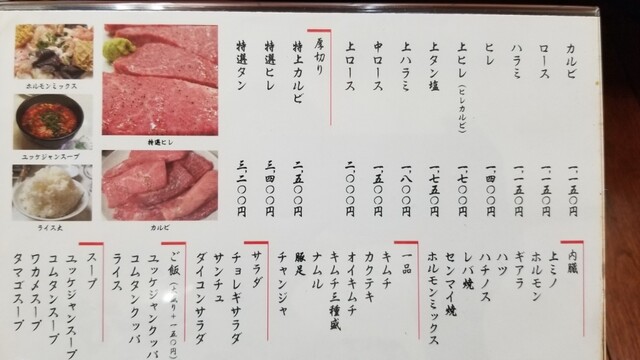 カルビ 一、一五〇円
ロース 一、一五〇円
ハラミ 一、一五〇円
ヒレ 一、四〇〇円
上ヒレ(ヒレカルビ) 一、七〇〇円
上タン塩 一、七五〇円
上ハラミ 一、八〇〇円
中ロース 一、五〇〇円
上ロース 二、〇〇〇円
厚切り
特上カルビ 二、五〇〇円
特選ヒレ 三、四〇〇円
特選タン 三、二〇〇円
特選ヒレ
カルビ
ホルモンミックス
ユッケジャンスープ
ライス大
内臓
上ミノ
ホルモン
ギアラ
ハツ
ハチノス
レバ焼
センマイ焼
ホルモンミックス
一品
キムチ
カクテキ
オイキムチ
キムチ三種盛
ナムル
豚足
チャンジャ
サラダ
チョレギサラダ
サンチュ
ダイコンサラダ
ご飯(大もり+一五〇円)
ユッケジャンクッパ
コムタンクッパ
ライス
スープ
ユッケジャンスープ
コムタンスープ
ワカメスープ
タマゴスープ